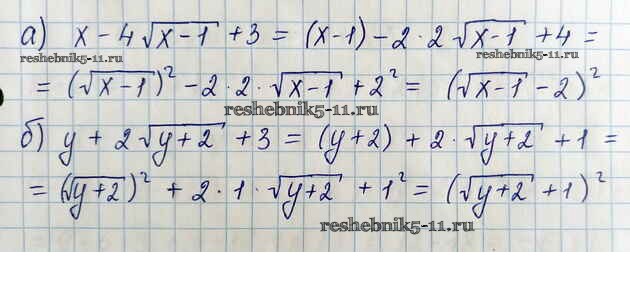 а) x - 4√(x-1) + 3 = (x-1) - 2·2√(x-1) + 4 =
reshebnik5-11.ru
reshebnik5-11.ru
= (√(x-1))² - 2·2·√(x-1) + 2² = (√(x-1) - 2)²
reshebnik5-11.ru
б) y + 2√(y+2) + 3 = (y+2) + 2·√(y+2) + 1 =
= (√(y+2))² + 2·1·√(y+2) + 1² = (√(y+2) + 1)²
reshebnik5-11.ru